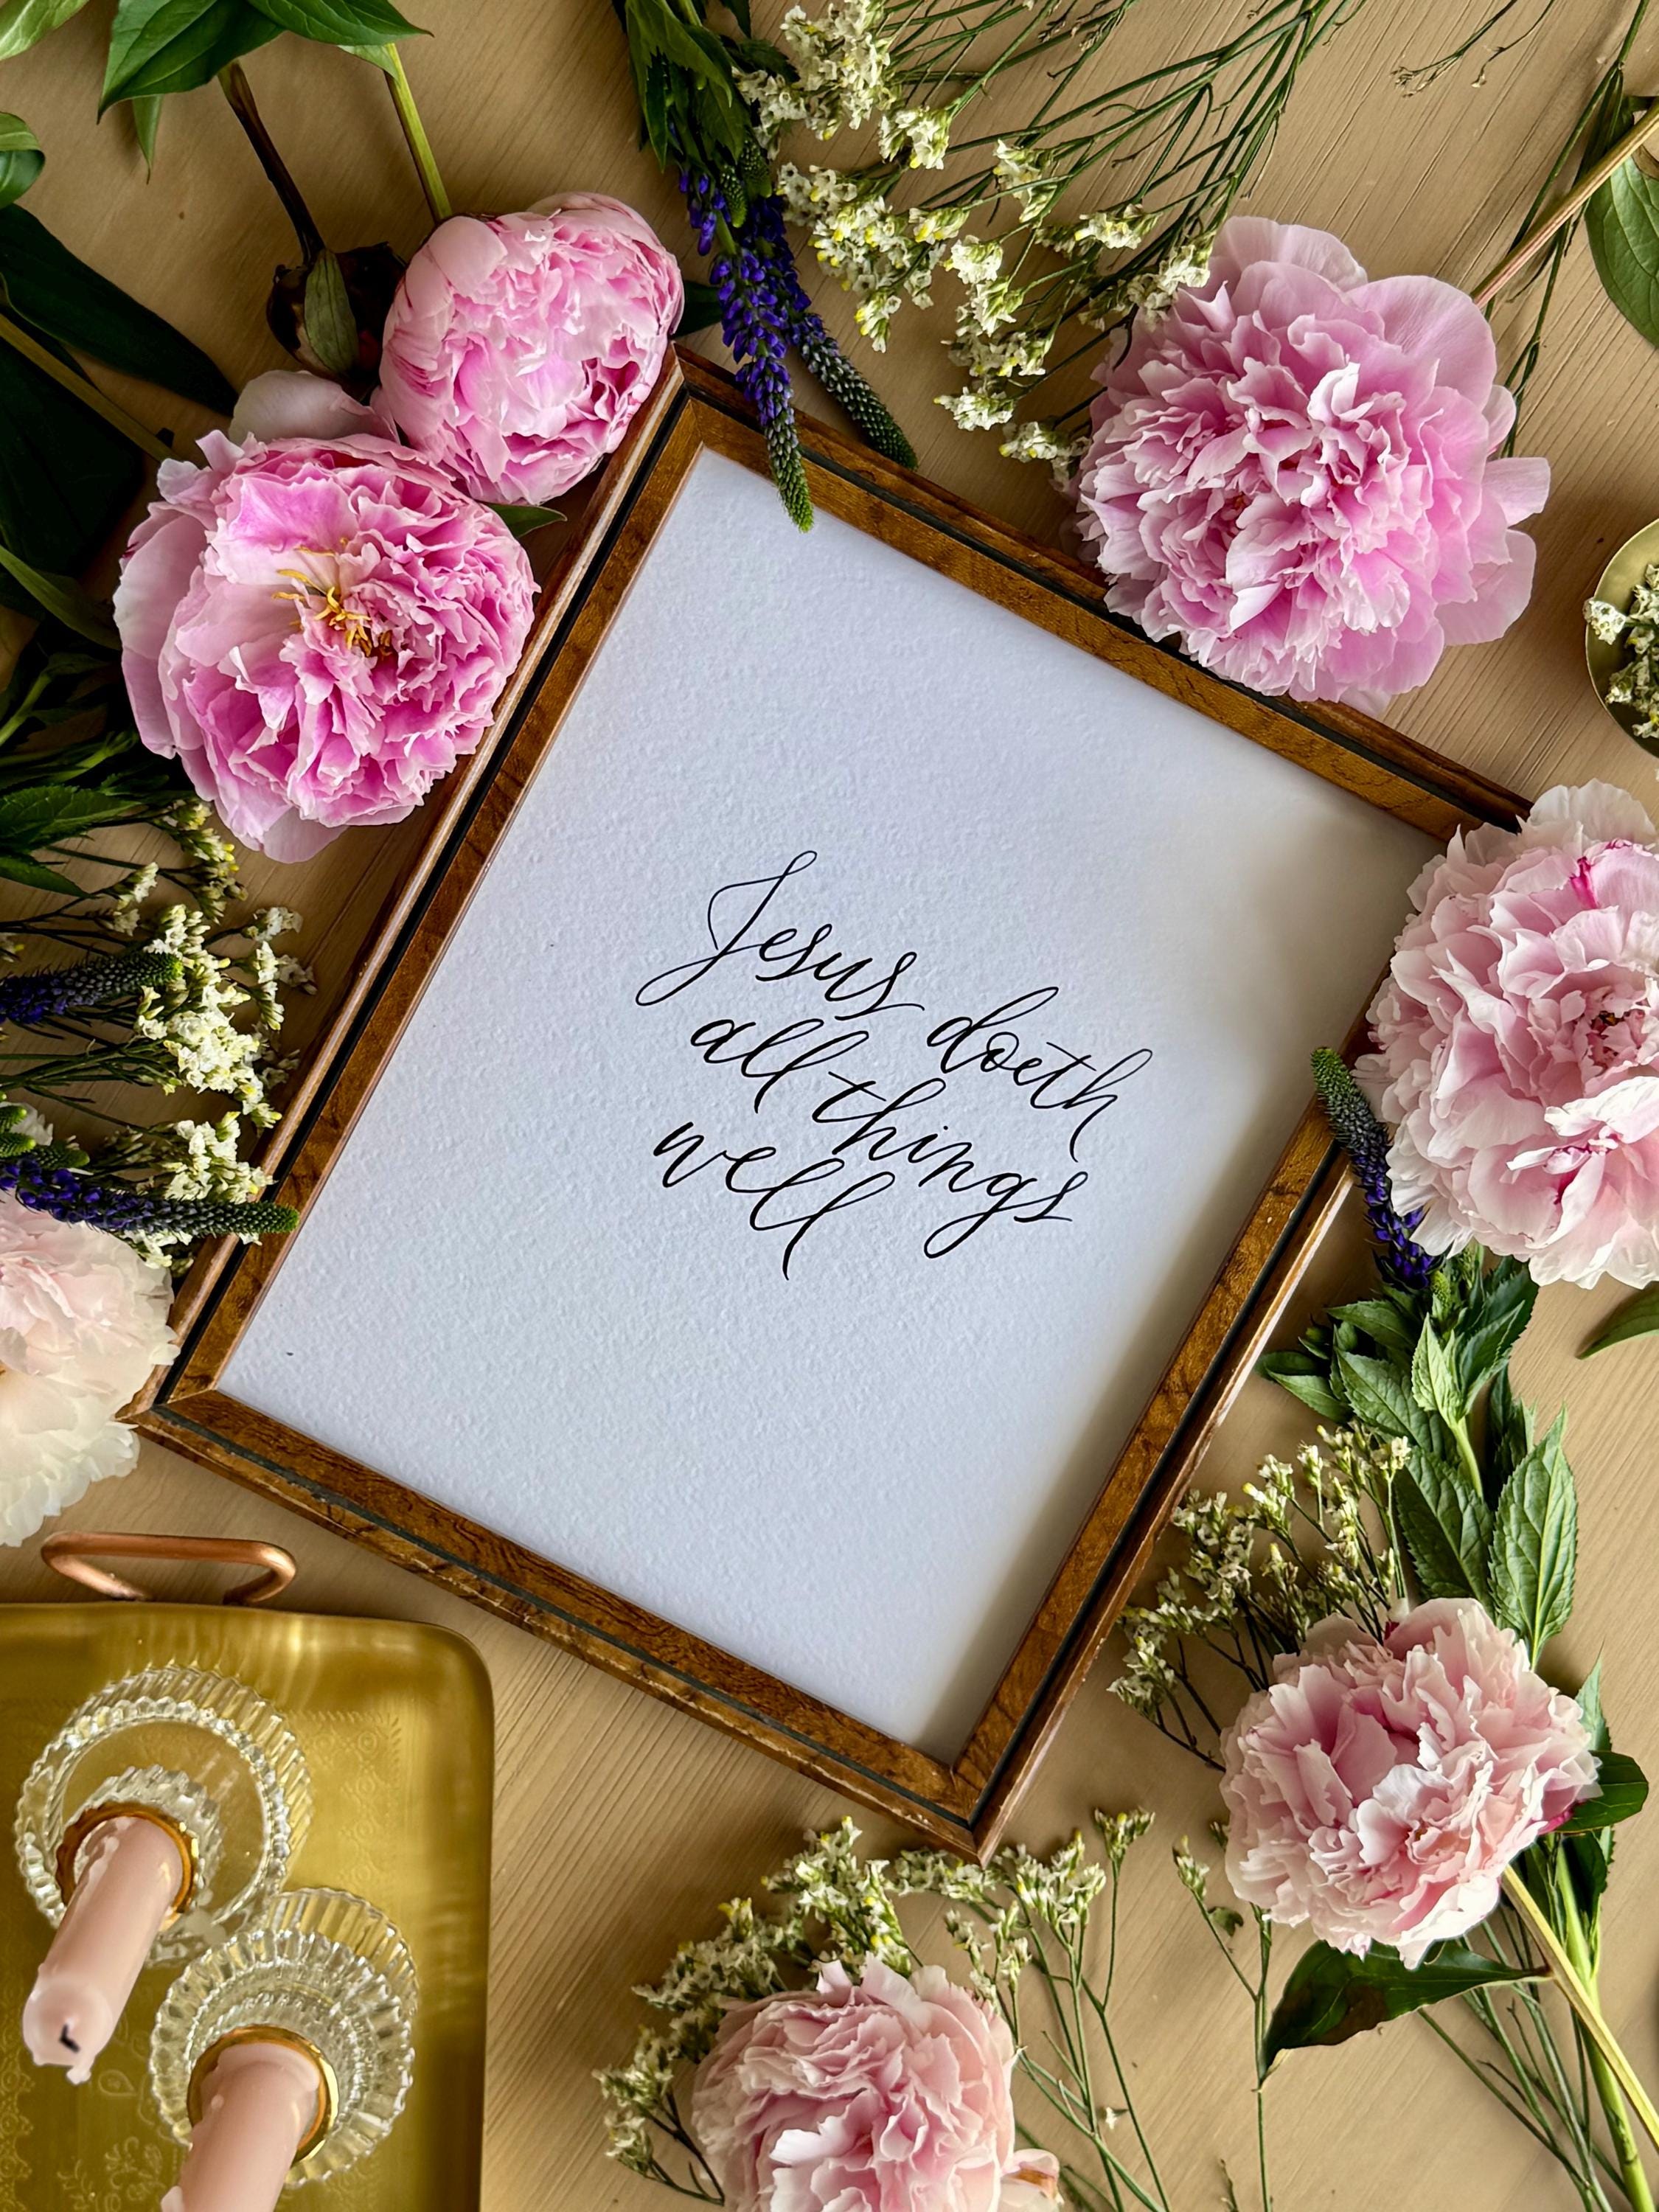 Jesus doeth
all things
well